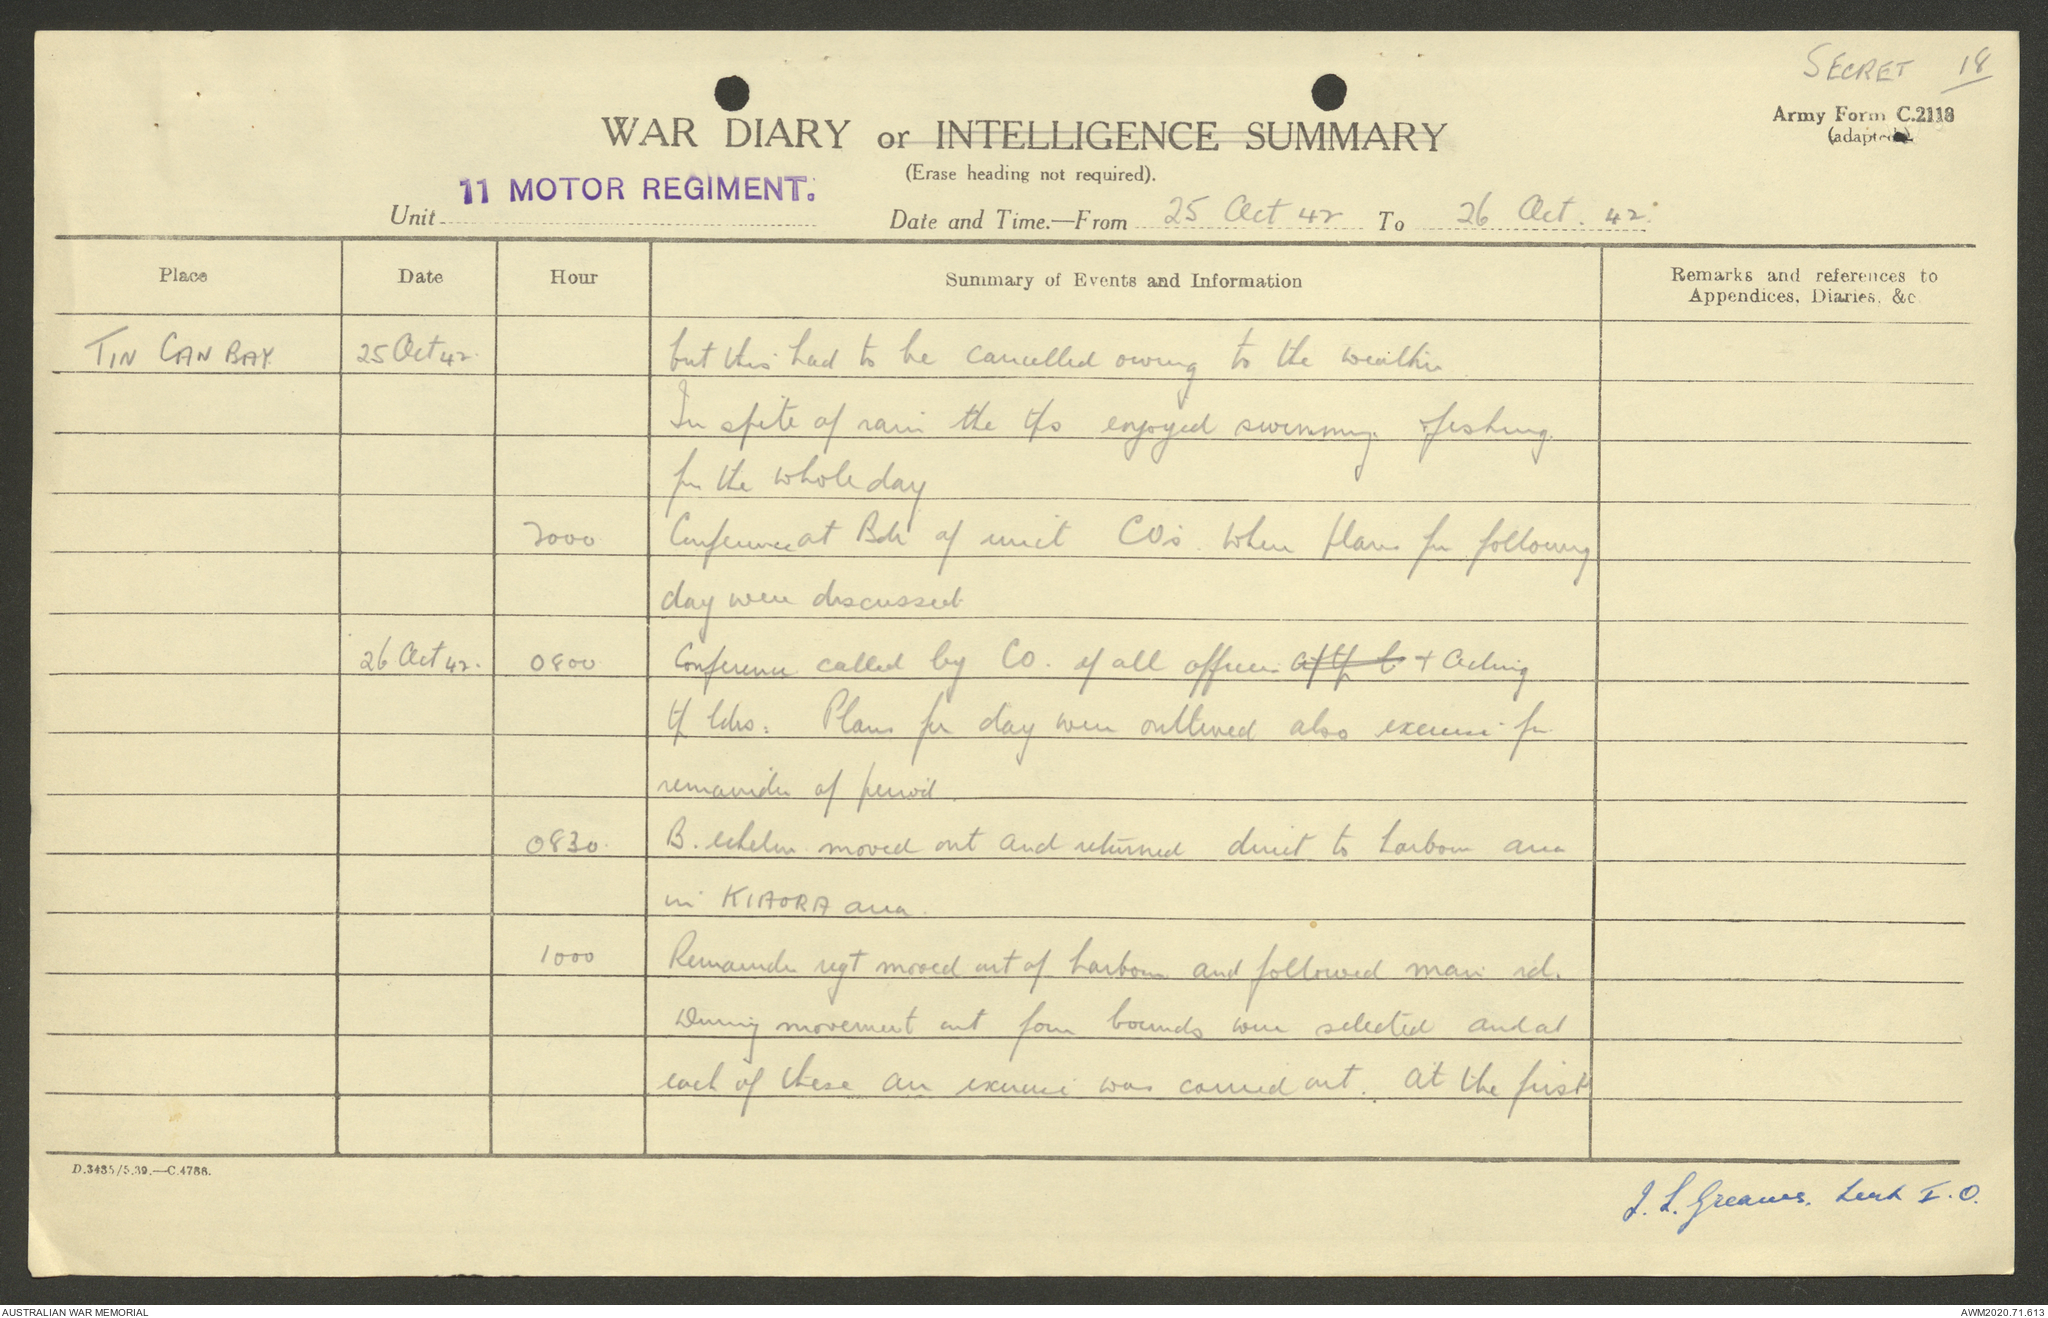 SECRET 18
Army Form C.2118
(adapted).
WAR DIARY or INTELLIGENCE SUMMARY
(Erase heading not required).
11 MOTOR REGIMENT.
Unit
Date and Time.—From 25 Oct 42 To 26 Oct. 42.
Place Date Hour Summary of Events and Information Remarks and references to
Appendices, Diaries, &c
TIN CAN BAY 25 Oct 42. but this had to be cancelled owing to the weather
In spite of rain the tps enjoyed swimming + fishing
for the whole day
2000 Conference at Bde of unit COs when plans for following
day were discussed
26 Oct 42. 0800 Conference called by CO. of all officers + Acting
tp ldrs. Plans for day were outlined also exercise for
remainder of period.
0830 B. echelon moved out and returned direct to harbour area
in KIAORA area.
1000 Remainder regt moved out of harbour and followed main rd.
During movement out four bounds were selected and at
each of these an exercise was carried out. At the first
D.3435/5.39.—C.4786.
J. L. Greaves. Lieut I.O.
AUSTRALIAN WAR MEMORIAL
AWM2020.71.613